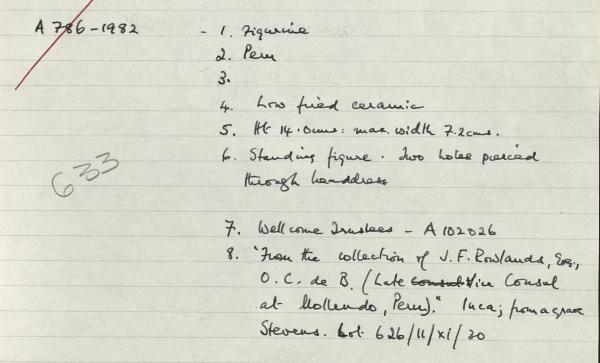 A 786-1982 - 1. Figurine
2. Peru
3.
4. Low fired ceramic
5. Ht 14.0cms: max. width 7.2cms.
6. Standing figure. Two holes pierced
through headdress
633
7. Wellcome Trustees - A 102026
8. "From the collection of J.F. Rowlands, Esq.,
O.C. de B. (Late Consul Vice Consul
at Mollendo, Peru)." Inca; from a grave
Stevens. Lot. 626/11/xi/30